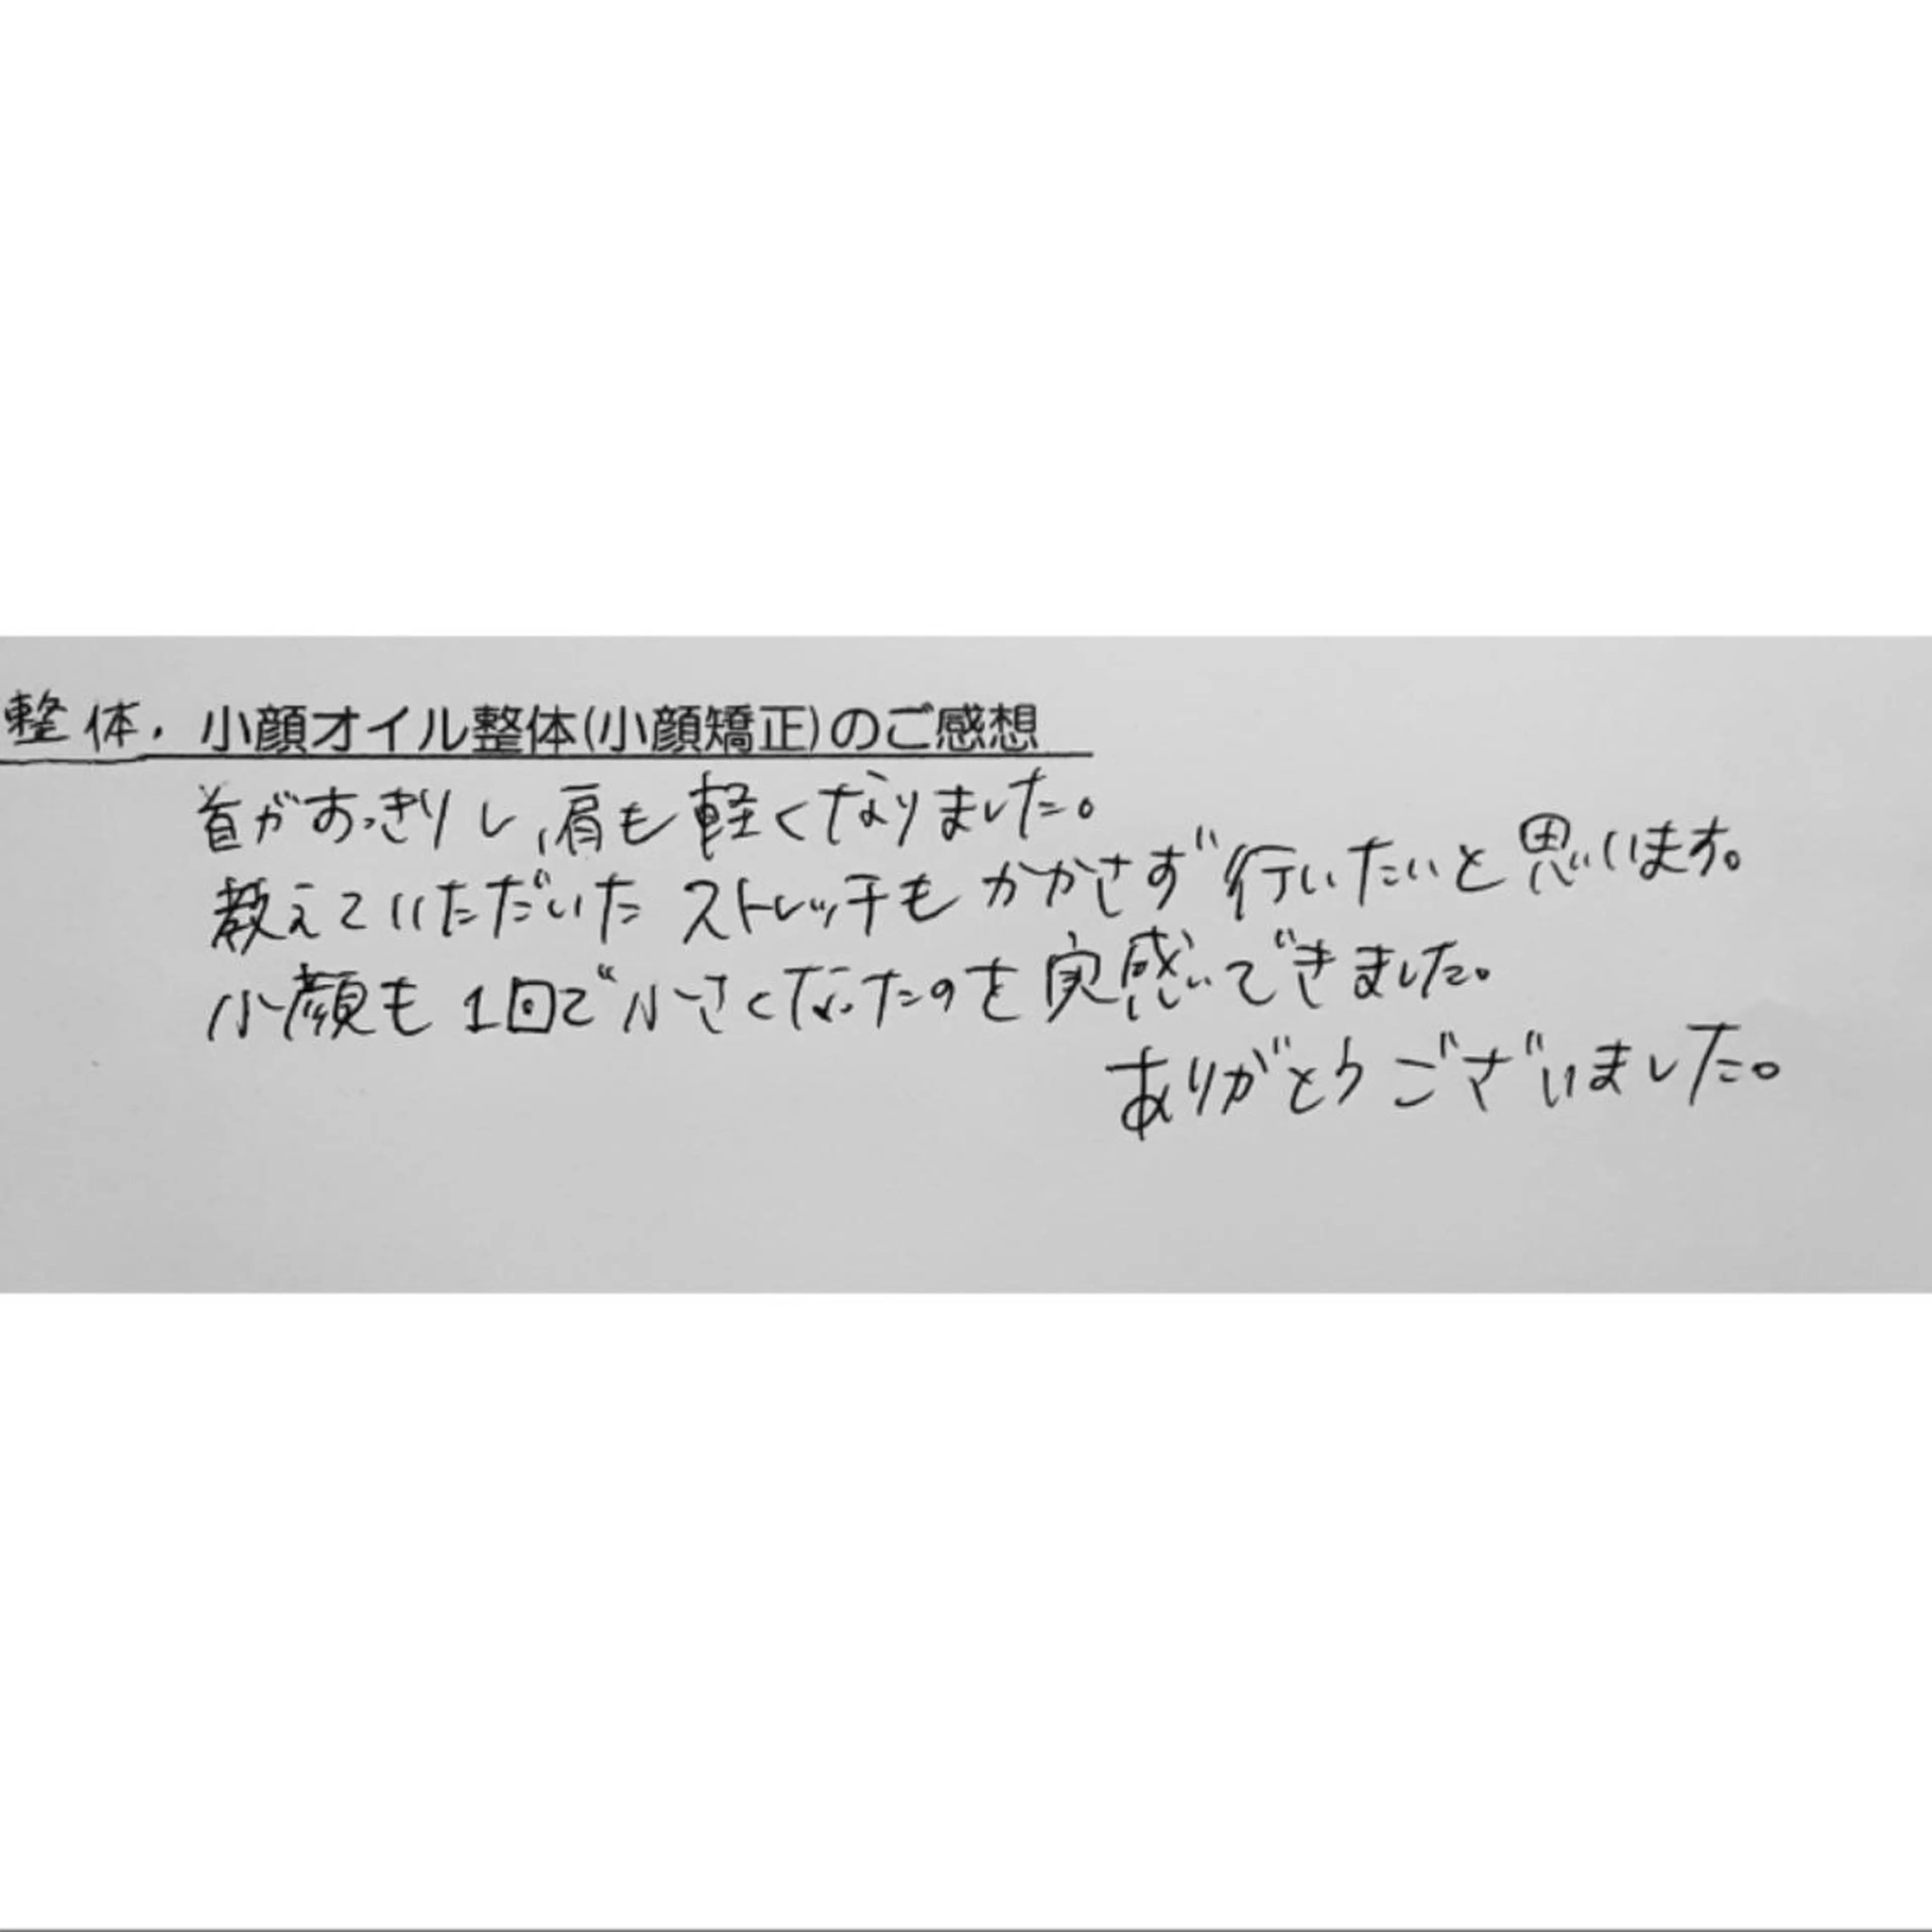 整体、小顔オイル整体(小顔矯正)のご感想
首がすっきりし、肩も軽くなりました。
教えていただいたストレッチもかかさず行いたいと思います。
小顔も1回で小さくなったのを実感できました。
ありがとうございました。